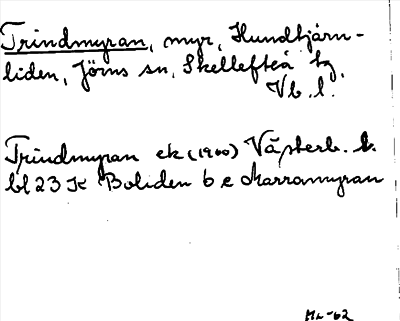 Trindmyran, myr, Hundtjärn-
liden, Jörns sn, Skellefteå tg,
Vb. l.
Trindmyran ek (1960) Västerb. l.
bl 23 K Boliden 6 e Marramyran
-62